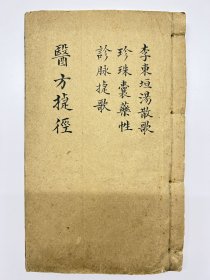 李東垣湯散歌
珍珠囊藥性
診脉捷歌
醫方捷徑